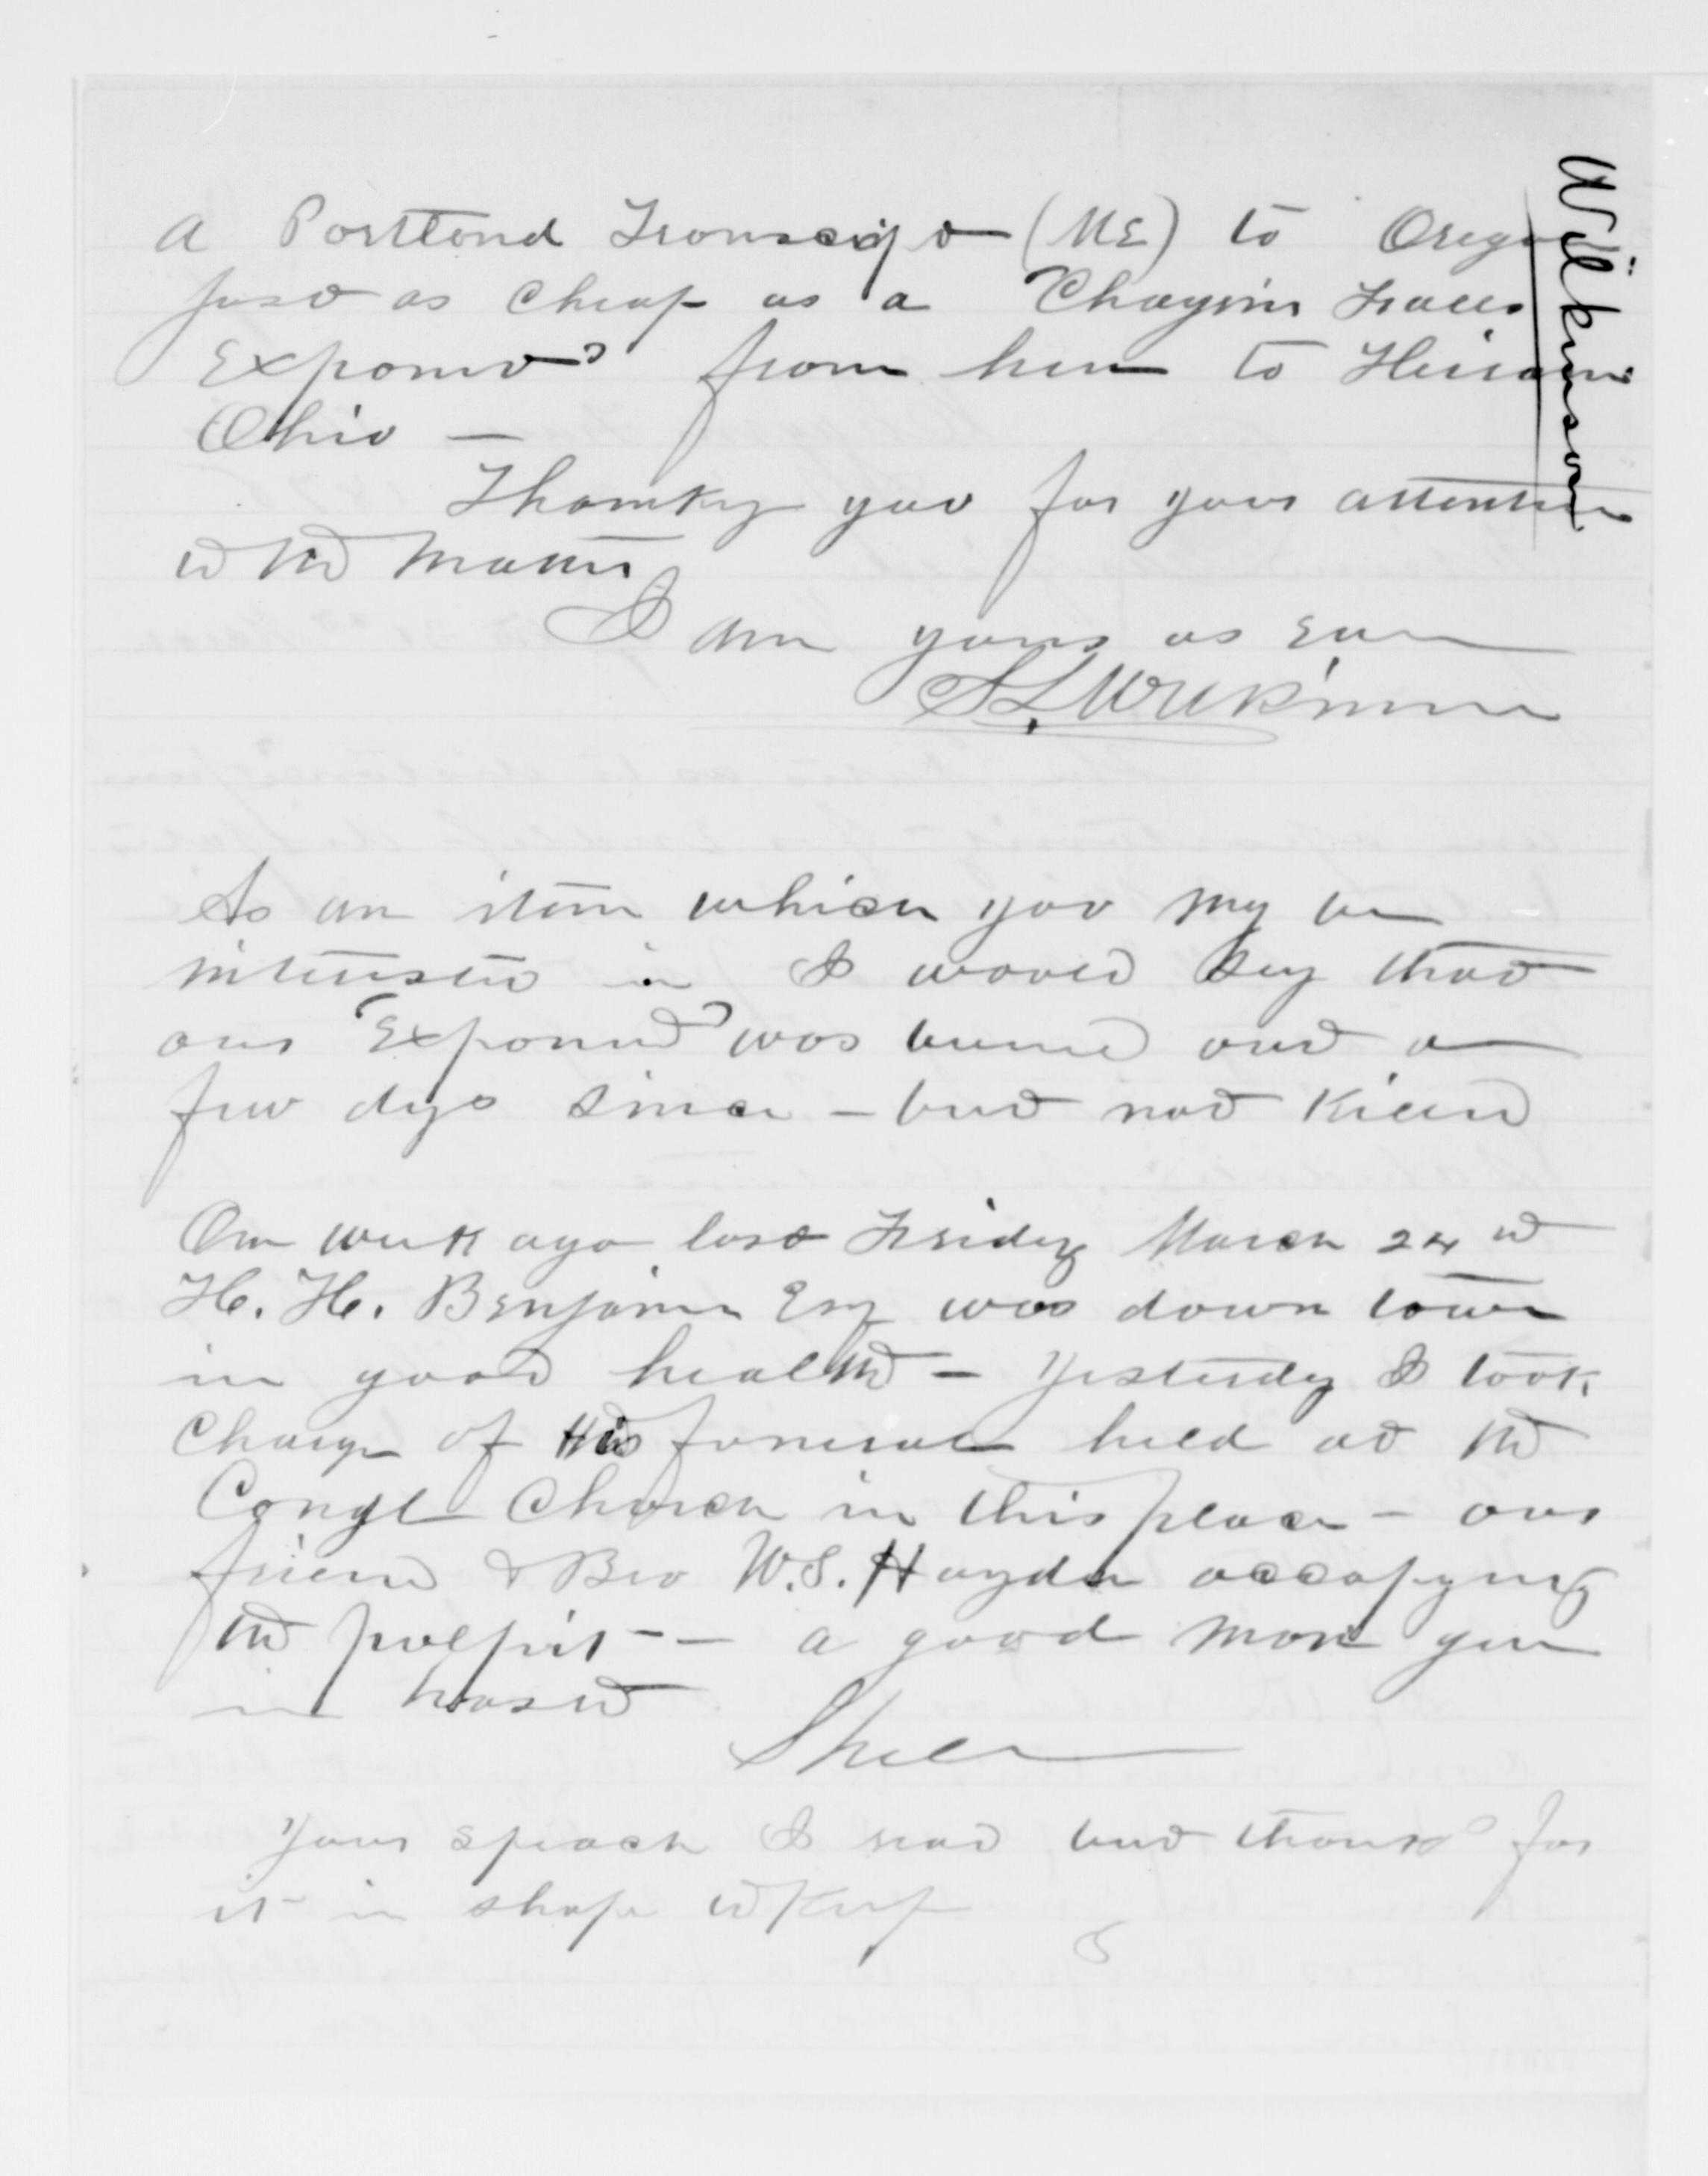 Wilkinson
A Portland Transcript (ME) to Oregon
just as cheap as a "Chagrin Falls
Exponent" from here to Hiram
Ohio —
Thanking you for your attention
to the matter
I am yours as ever
S L Wilkinson
As an item which you may be
interested in I would say that
our "Exponent" was burned out a
few days since — but not killed
One week ago last Friday March 24th
H. H. Benjamin Esq was down town
in good health — Yesterday I took
charge of his funeral held at the
Congl Church in this place — our
friend & Bro W. S. Hayden occupying
the pulpit — a good man gone
in
Your speech I read and thanks for
it in shape to keep
S